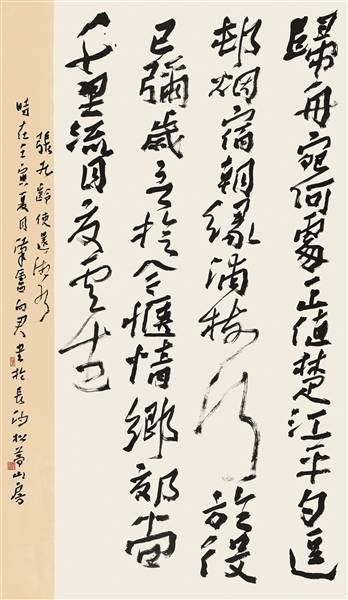 歸舟宛何處正值楚江平夕逗
邨烟宿朝緣浦樹行於役
已彌歲言旋今愜情鄉郊尚
千里流目夏雲生
張九齡使還湘水
時在壬寅夏月向君書於長沙松山房